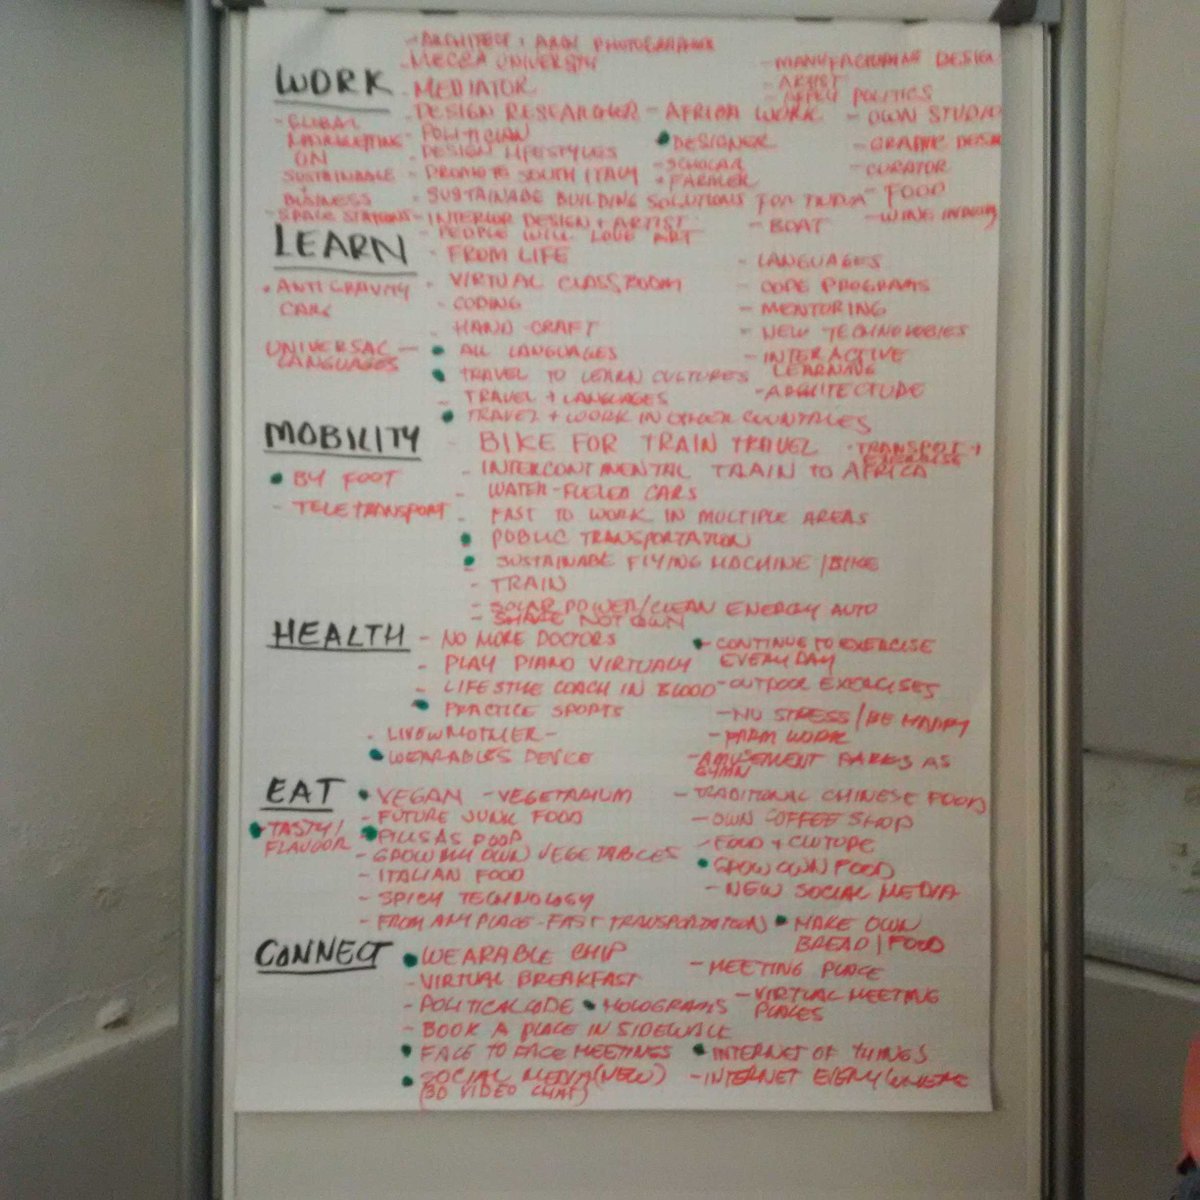 WORK
- ARCHITECT + ARCH PHOTOGRAPHER
- MECCA UNIVERSITY
- MEDIATOR
- DESIGN RESEARCHER
- POLITICIAN
- DESIGN LIFESTYLES
- PROMOTE SOUTH ITALY
- SUSTAINABE BUILDING SOLUTIONS FOR INDIA
- INTERIOR DESIGN + ARTIST
- PEOPLE WILL LOVE ART
- GLOBAL
MARKETING
ON
SUSTAINABLE
+
BUSINESS
- SPACE STATIONS
- AFRICA WORK
• DESIGNER
- SCHOLAR
+ FARMER
- BOAT
- MANUFACTURING DESIGN
- ARTIST
- APPLY POLITICS
- OWN STUDIO
- GRAPHIC DESIGN
- CURATOR
- FOOD
- WINE
LEARN
- FROM LIFE
- VIRTUAL CLASSROOM
- CODING
- HAND CRAFT
• ALL LANGUAGES
• TRAVEL TO LEARN CULTURES
- TRAVEL + LANGUAGES
• TRAVEL + WORK IN OTHER COUNTRIES
• ANTI GRAVITY
CARS
UNIVERSAL —
LANGUAGES
- LANGUAGES
- CODE PROGRAMS
- MENTORING
- NEW TECHNOLOGIES
- INTERACTIVE
LEARNING
- ARCHITECTURE
MOBILITY
- BIKE FOR TRAIN TRAVEL
- TRANSPORT +
EXERCISE
- INTERCONTINENTAL TRAIN TO AFRICA
- WATER-FUELED CARS
- FAST TO WORK IN MULTIPLE AREAS
• PUBLIC TRANSPORTATION
• SUSTAINABLE FLYING MACHINE / BIKE
- TRAIN
- SOLAR POWER/CLEAN ENERGY AUTO
- SHARE NOT OWN
• BY FOOT
- TELETRANSPORT
HEALTH
- NO MORE DOCTORS
- PLAY PIANO VIRTUALY
- LIFESTYLE COACH IN BLOOD
• PRACTICE SPORTS
- LIVE W MOTHER -
• WEARABLES DEVICE
• CONTINUE TO EXERCISE
EVERYDAY
- OUTDOOR EXERCISES
- NO STRESS / BE HAPPY
- FARM WORK
- AMUSEMENT PARKS AS
GYMN
EAT
• TASTY/
FLAVOUR
• VEGAN - VEGETARIUM
- FUTURE JUNK FOOD
• PILLS AS FOOD
- GROW MY OWN VEGETABLES
- ITALIAN FOOD
- SPICY TECHNOLOGY
- FROM ANY PLACE - FAST TRANSPORTATION
- TRADITIONAL CHINESE FOOD
- OWN COFFEE SHOP
- FOOD +
• GROW OWN FOOD
- NEW SOCIAL MEDIA
• MAKE OWN
BREAD / FOOD
CONNECT
• WEARABLE CHIP
- VIRTUAL BREAKFAST
- POLITICAL CODE
• HOLOGRAMS
- BOOK A PLACE IN SIDEWALK
• FACE TO FACE MEETINGS
• SOCIAL MEDIA (NEW)
(3D VIDEO CHAT)
- MEETING PLACE
- VIRTUAL MEETING
PLACES
• INTERNET OF THINGS
- INTERNET EVERYWHERE